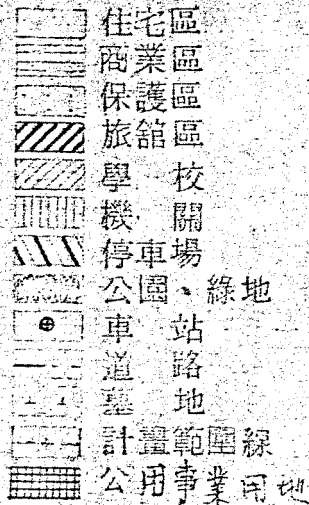 住宅區
商業區
保護區
旅舘區
學校
機關
停車場
公園、綠地
車站
道路
墓地
計畫範圍線
公用事業用地